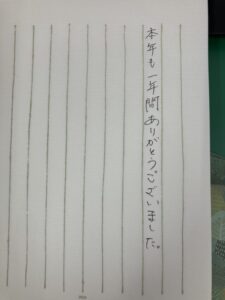 本年も一年間ありがとうございました。